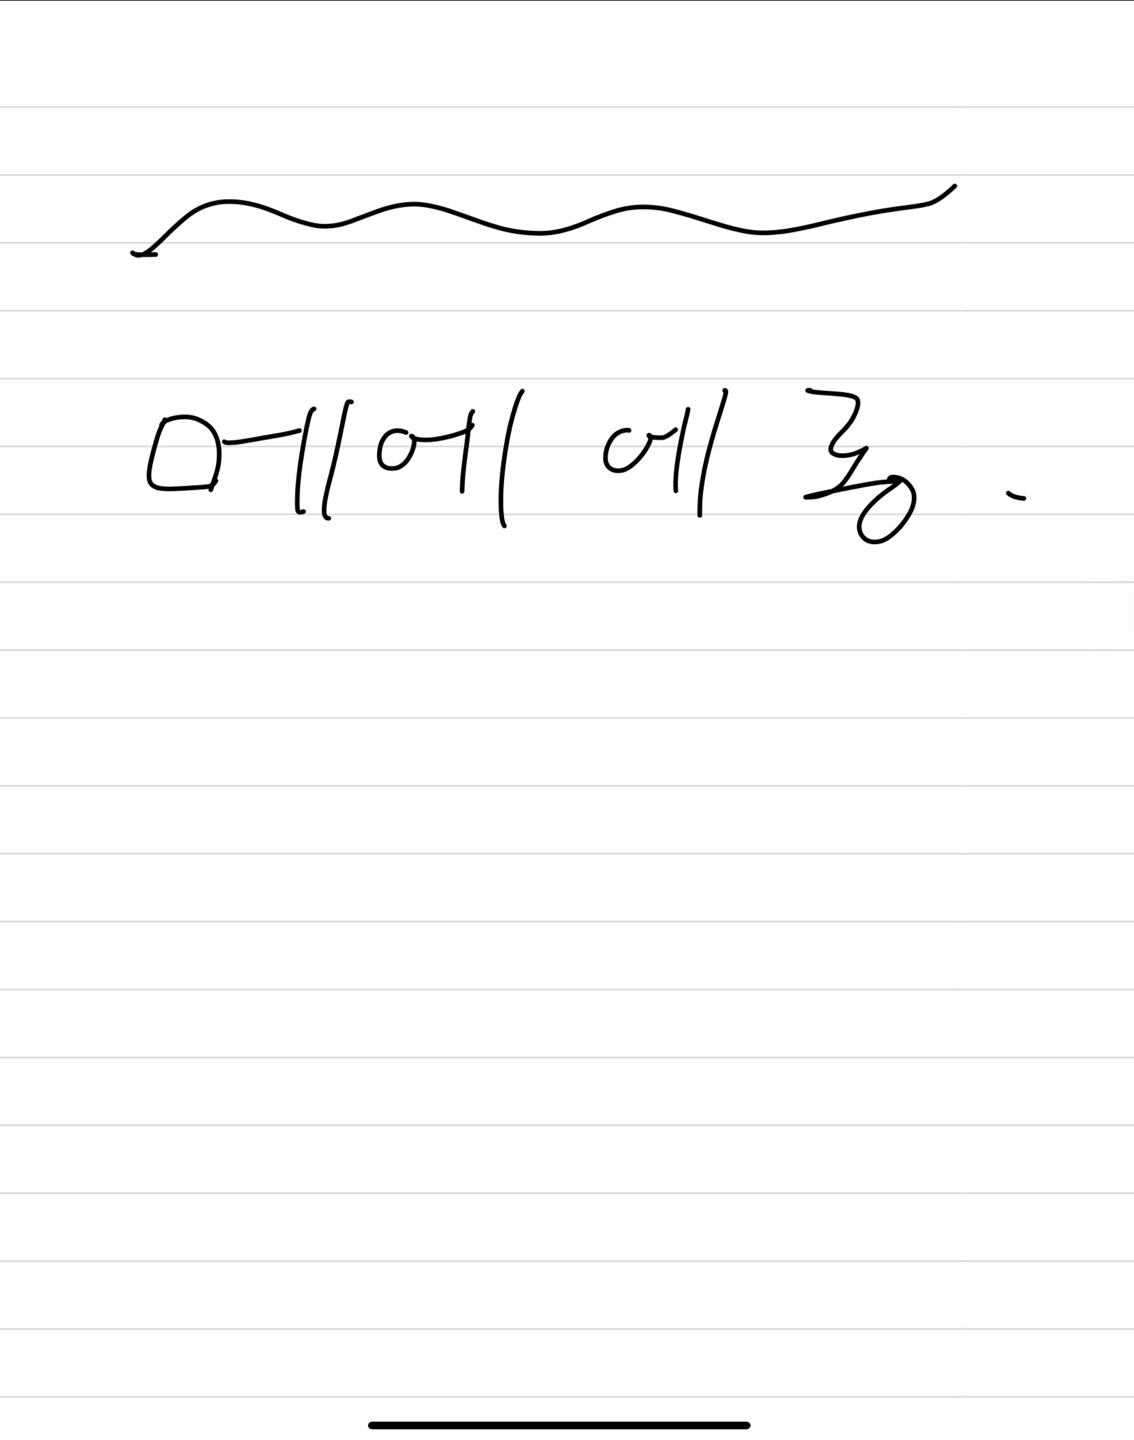 메에에롱.